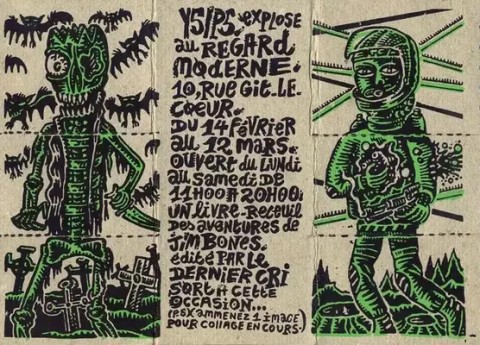 Y5/P5 EXPLOSE
au REGARD
MODERNE.
10, RUE GIT-LE-
COEUR.
DU 14 FÉVRIER
AU 12 MARS.
OUVERT DU LUNDI
AU SAMEDI DE
11H00 À 20H00.
UN LIVRE-RECEUIL
DES AVENTURES DE
JIM BONES.
ÉDITÉ PAR LE
DERNIER CRI
SORT À CETTE
OCCASION...
(P.S X AMMENEZ 1 IMAGE
POUR COLLAGE EN COURS.)